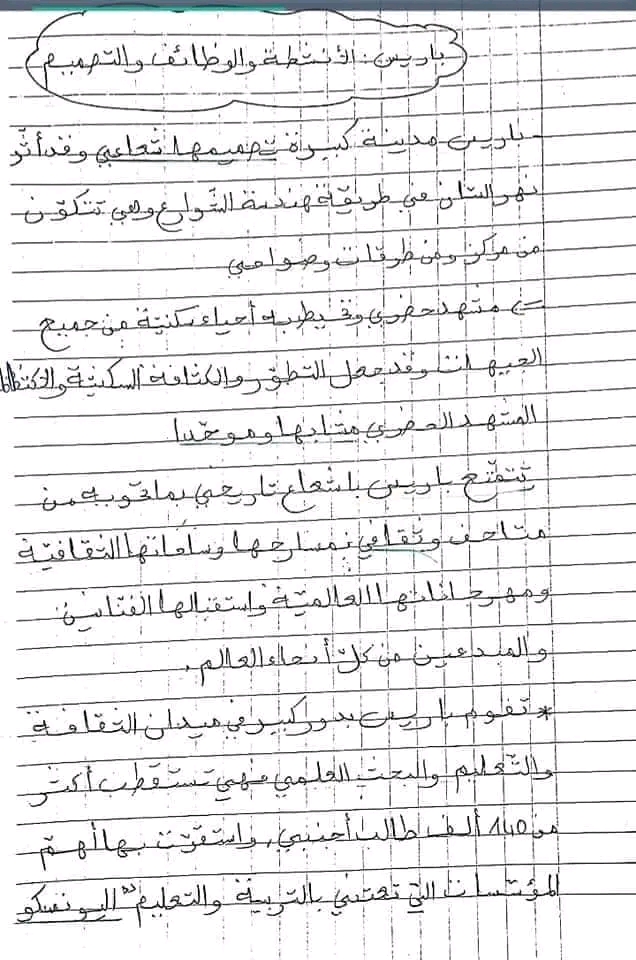 باريس: الأنشطة والوظائف والتصميم
- باريس مدينة كبيرة تصميمها شعاعي وقد أثّر
نهر السّان في طريقة هندسة الشّوارع وهي تتكوّن
من مركز ومن طرقات وضواحي
=> مشهد حضري تحيط به أحياء سكنيّة من جميع
الجهات وقد جعل التطوّر والكثافة السكنيّة والاكتظاظ
المشهد الحضري متشابها وموحّدا
يتمتّع باريس بإشعاع تاريخي بما تحويه من
متاحف وثقافي بمسارحها وساحاتها الثقافيّة
ومهرجاناتها العالميّة واستقبالها الفنّانين
والمبدعين من كلّ أنحاء العالم.
* تقوم باريس بدور كبير في ميدان الثقافة
والتّعليم والبحث العلمي فهي تستقطب أكثر
من 140 ألف طالب أجنبي، واستقرّت بها أهمّ
المؤسّسات التي تعتني بالتربية والتعليم "اليونسكو